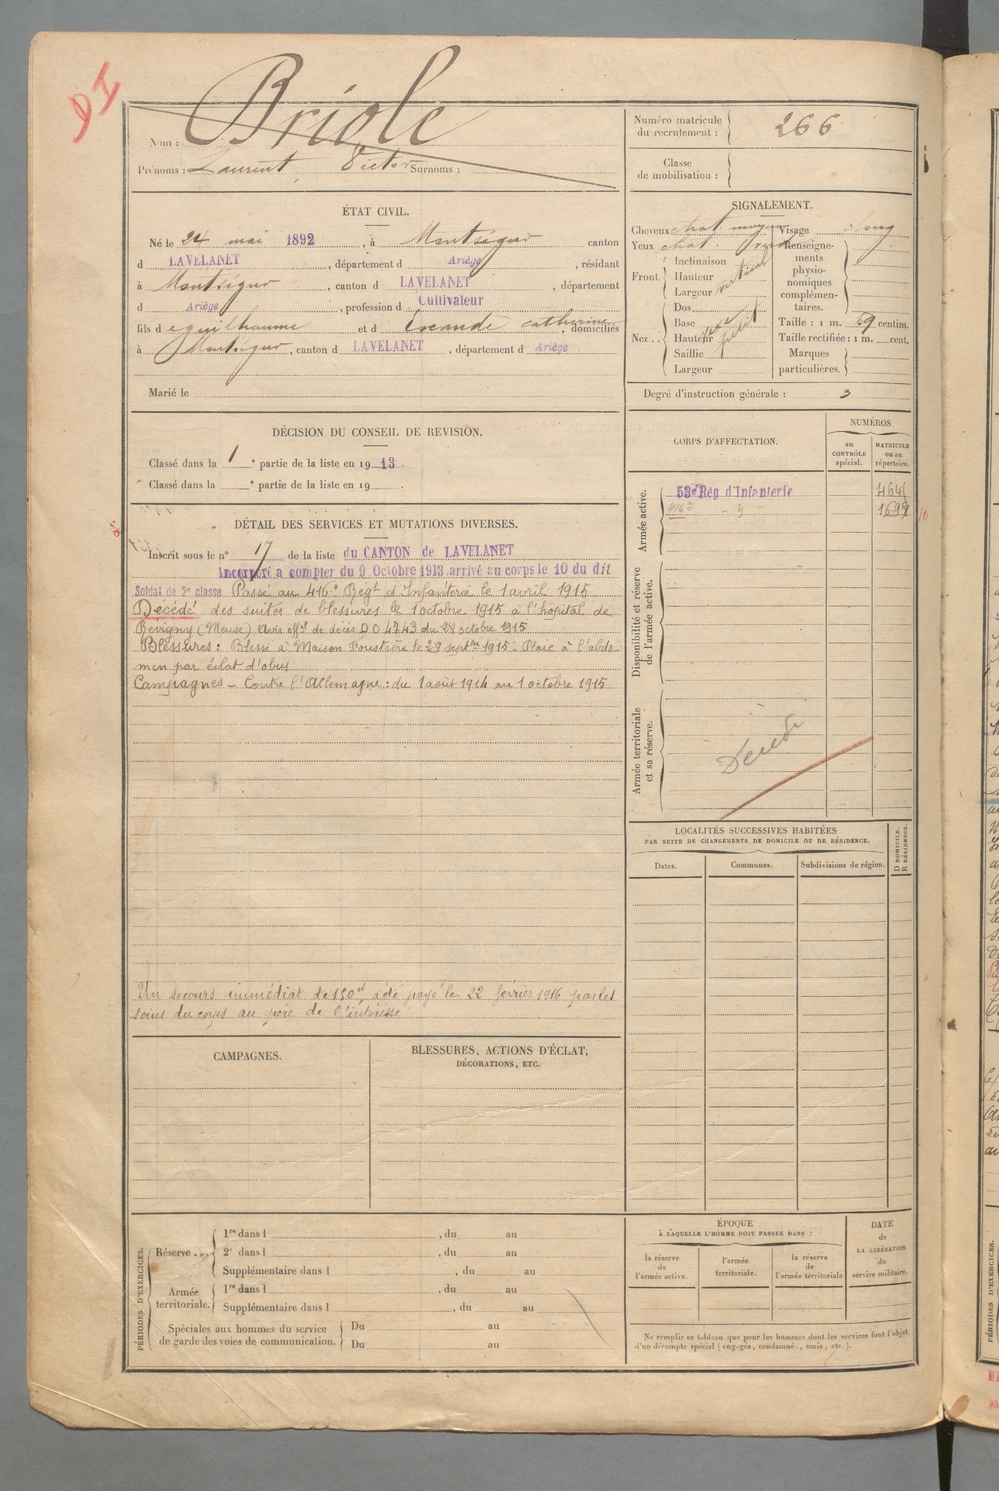 Nom : Briole
Prénoms : Laurent, Victor Surnoms :
Numéro matricule du recrutement : 266
Classe de mobilisation :
ÉTAT CIVIL.
Né le 24 mai 1892, à Montségur canton
d LAVELANET, département d Ariège, résidant
à Montségur, canton d LAVELANET, département
d Ariège, profession d Cultivateur
fils d e guilhaume et d' Escande catherine domiciliés
à Montségur, canton d LAVELANET, département d Ariège
Marié le
SIGNALEMENT.
Cheveux chat moyen Visage long
Yeux chat.
Front. Inclinaison vertical
Hauteur
Largeur
Nez .. Dos
Base
Hauteur
Saillie
Largeur
Renseignements physionomiques complémentaires.
Taille : 1 m. 69 centim.
Taille rectifiée : 1 m. cent.
Marques particulières.
Degré d'instruction générale : 3
DÉCISION DU CONSEIL DE REVISION.
Classé dans la 1e partie de la liste en 1913.
Classé dans la e partie de la liste en 19
DÉTAIL DES SERVICES ET MUTATIONS DIVERSES.
Inscrit sous le n° 17 de la liste du CANTON de LAVELANET
Incorporé à compter du 9 Octobre 1913, arrivé au corps le 10 du dit
Soldat de 2e classe Passé au 416e Régt d'Infanterie le 1 avril 1915
Décédé des suites de blessures le 1 octobre 1915 à l'hôpital de
Révigny (Meuse) avis offel de décès D O 4743 du 28 octobre 1915
Blessures : Blessé à Maison Foustière le 29 septbre 1915 : Plaie à l'abdo
men par éclat d'obus
Campagnes – Contre l'Allemagne : du 1 août 1914 au 1 octobre 1915
Un secours immédiat de 150f a été payé le 22 février 1916 par les
soins du corps au père de l'intéressé
CORPS D'AFFECTATION.
NUMÉROS
au CONTRÔLE spécial.
MATRICULE ou au répertoire.
Armée active.
53e Rég d'Infanterie
416e
Disponibilité et réserve de l'armée active.
Armée territoriale et sa réserve.
Décédé
LOCALITÉS SUCCESSIVES HABITÉES
PAR SUITE DE CHANGEMENTS DE DOMICILE OU DE RÉSIDENCE.
Dates. Communes. Subdivisions de région. D DOMICILE. R RÉSIDENCE.
CAMPAGNES.
BLESSURES, ACTIONS D'ÉCLAT,
DÉCORATIONS, ETC.
PÉRIODES D'EXERCICES.
Réserve ... 1re dans l , du au
2e dans l , du au
Supplémentaire dans l , du au
Armée territoriale. 1re dans l , du au
Supplémentaire dans l , du au
Spéciales aux hommes du service de garde des voies de communication. Du au
Du au
ÉPOQUE
À LAQUELLE L'HOMME DOIT PASSER DANS :
la réserve de l'armée active.
l'armée territoriale.
la réserve de l'armée territoriale
DATE de LA LIBÉRATION du service militaire.
Ne remplir ce tableau que pour les hommes dont les services font l'objet
d'un décompte spécial (engagés, condamné., omis, etc.).